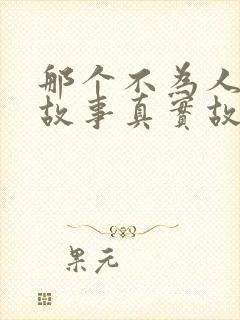 那个不为人
故事真實故
果元